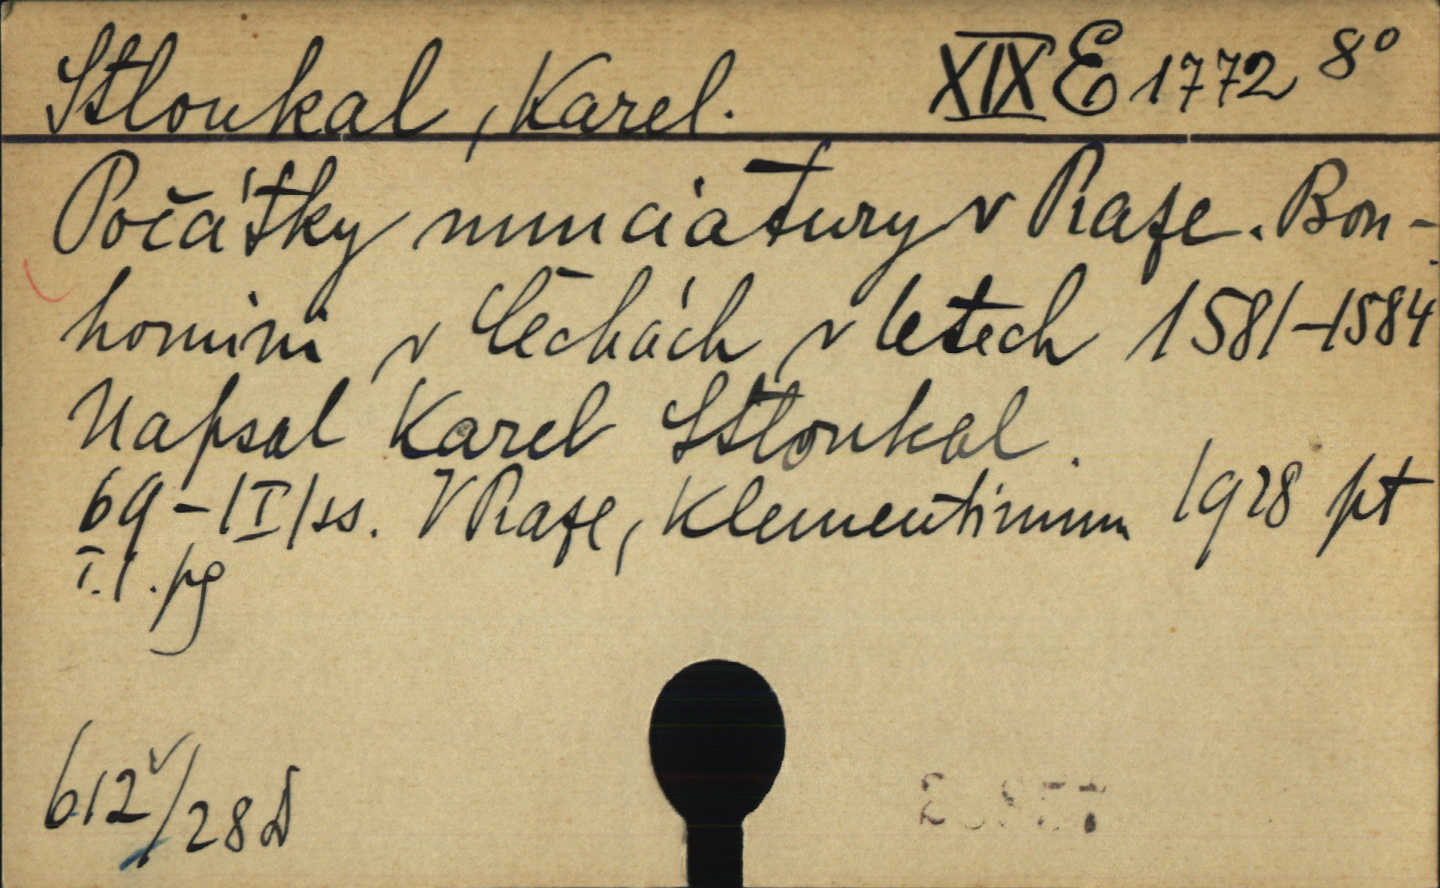 Stloukal, Karel. XIX E 1772 8°
Počátky nunciatury v Praze. Bon-
homini v Čechách v letech 1581-1584
Napsal Karel Stloukal.
69-|I|ss. V Praze, Klementinum 1928 pt
I.1.pg
612/28 D